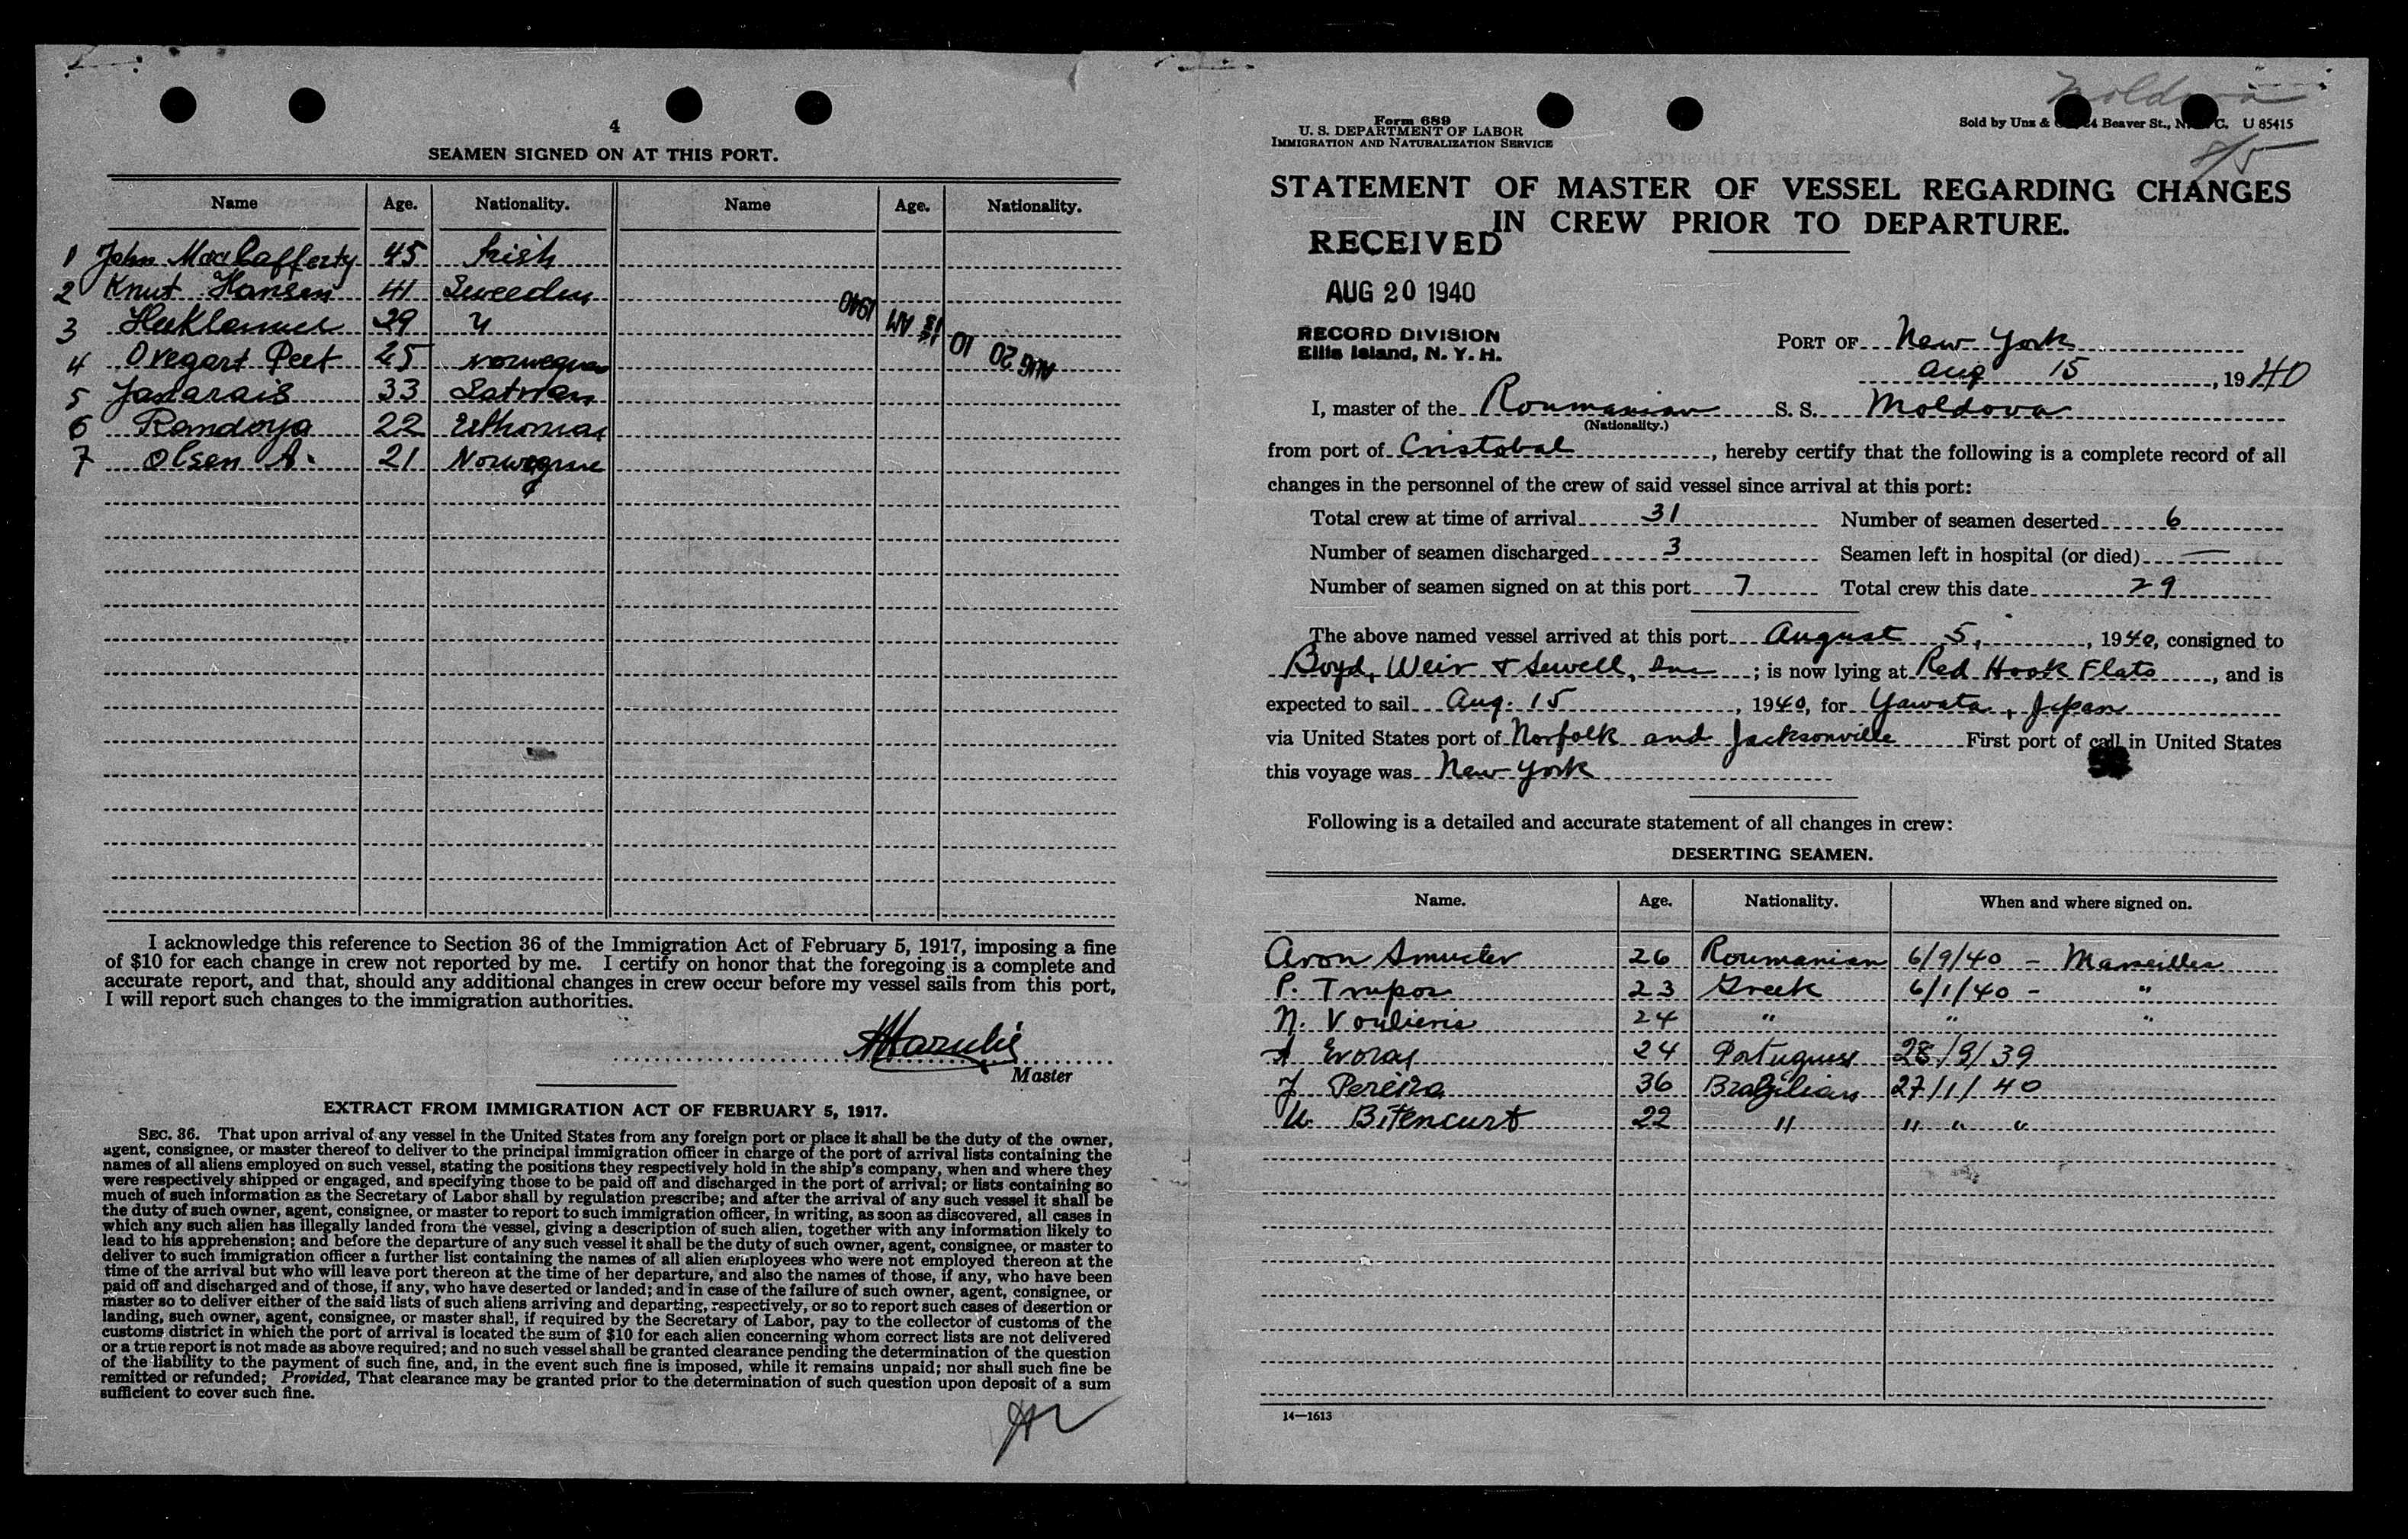 4
SEAMEN SIGNED ON AT THIS PORT.
Name Age. Nationality. Name Age. Nationality.
1 John MacCafferty 45 Irish
2 Knut Hansen 41 Sweeden
3 29 "
4 Ovegart Peet 25 Norwegian
5 Jantarais 33 Latvian
6 Randoya 22
7 Olsen A. 21 Norwegine
AUG 20 10 13 AM 1940
I acknowledge this reference to Section 36 of the Immigration Act of February 5, 1917, imposing a fine
of $10 for each change in crew not reported by me. I certify on honor that the foregoing is a complete and
accurate report, and that, should any additional changes in crew occur before my vessel sails from this port,
I will report such changes to the immigration authorities.
Master
EXTRACT FROM IMMIGRATION ACT OF FEBRUARY 5, 1917.
SEC. 36. That upon arrival of any vessel in the United States from any foreign port or place it shall be the duty of the owner,
agent, consignee, or master thereof to deliver to the principal immigration officer in charge of the port of arrival lists containing the
names of all aliens employed on such vessel, stating the positions they respectively hold in the ship's company, when and where they
were respectively shipped or engaged, and specifying those to be paid off and discharged in the port of arrival; or lists containing so
much of such information as the Secretary of Labor shall by regulation prescribe; and after the arrival of any such vessel it shall be
the duty of such owner, agent, consignee, or master to report to such immigration officer, in writing, as soon as discovered, all cases in
which any such alien has illegally landed from the vessel, giving a description of such alien, together with any information likely to
lead to his apprehension; and before the departure of any such vessel it shall be the duty of such owner, agent, consignee, or master to
deliver to such immigration officer a further list containing the names of all alien employees who were not employed thereon at the
time of the arrival but who will leave port thereon at the time of her departure, and also the names of those, if any, who have been
paid off and discharged and of those, if any, who have deserted or landed; and in case of the failure of such owner, agent, consignee, or
master so to deliver either of the said lists of such aliens arriving and departing, respectively, or so to report such cases of desertion or
landing, such owner, agent, consignee, or master shall, if required by the Secretary of Labor, pay to the collector of customs of the
customs district in which the port of arrival is located the sum of $10 for each alien concerning whom correct lists are not delivered
or a true report is not made as above required; and no such vessel shall be granted clearance pending the determination of the question
of the liability to the payment of such fine, and, in the event such fine is imposed, while it remains unpaid; nor shall such fine be
remitted or refunded; Provided, That clearance may be granted prior to the determination of such question upon deposit of a sum
sufficient to cover such fine.
Moldova
8/5
Form 689
U. S. DEPARTMENT OF LABOR
IMMIGRATION AND NATURALIZATION SERVICE
Sold by Unz & Beaver St., N. C. U 85415
STATEMENT OF MASTER OF VESSEL REGARDING CHANGES
IN CREW PRIOR TO DEPARTURE.
RECEIVED
AUG 20 1940
RECORD DIVISION
Ellis Island, N. Y. H.
PORT OF New York
Aug 15, 1940
I, master of the Roumanian S. S. Moldova
(Nationality.)
from port of Cristobal, hereby certify that the following is a complete record of all
changes in the personnel of the crew of said vessel since arrival at this port:
Total crew at time of arrival 31 Number of seamen deserted 6
Number of seamen discharged 3 Seamen left in hospital (or died) —
Number of seamen signed on at this port 7 Total crew this date 29
The above named vessel arrived at this port August 5, 1940, consigned to
Boyd, Weir & Sewell, Inc; is now lying at Red Hook Flats, and is
expected to sail Aug. 15, 1940, for Yawata, Japan
via United States port of Norfolk and Jacksonville First port of call in United States
this voyage was New York
Following is a detailed and accurate statement of all changes in crew:
DESERTING SEAMEN.
Name. Age. Nationality. When and where signed on.
Aron Smucler 26 Roumanian 6/9/40 - Marseilles
P. Trupos 23 Greek 6/1/40 - "
N. Voulieris 24 " " "
A Evoray 24 Portuguese 28/9/39
J Pereira 36 Brazilian 27/1/40
U. Bitencurt 22 " " " "
14—1613